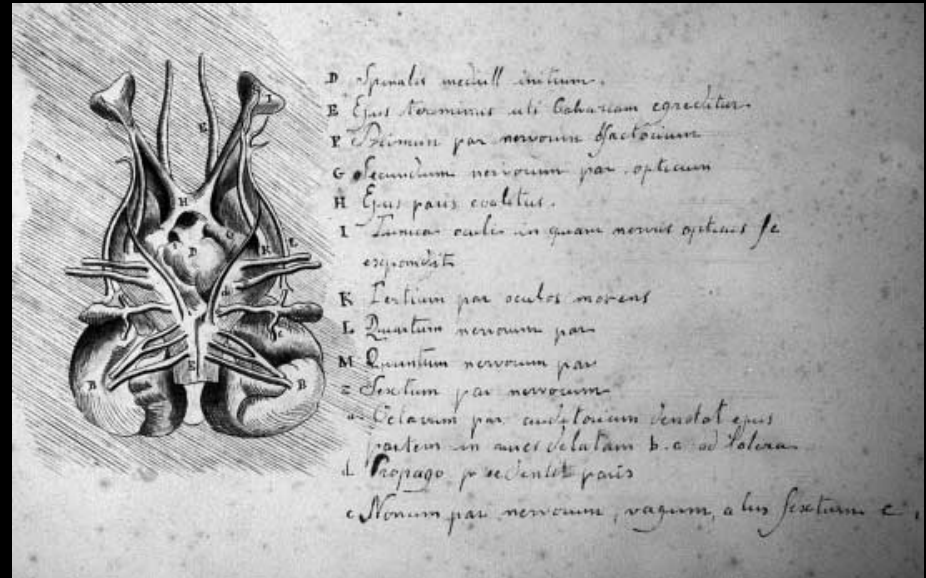 D Spinalis medull initium.
E Ejus terminus ubi egreditur
F Primum par nervorum olfactorium
G Secundum nervorum par opticum
H Ejus paris coalitus.
I Tunica oculi in quam nervus opticus se
expandit
K Tertium par oculos movens
L Quartum nervorum par
M Quintum nervorum par
Z Sextum par nervorum
a Octavum par auditorium denotat ejus
partem in aures delatam b. c ad
d Propago paris
e Nonum par nervorum, vagum, sextum e.
I
E
H
G
K
L
D
d
c
E
B
B